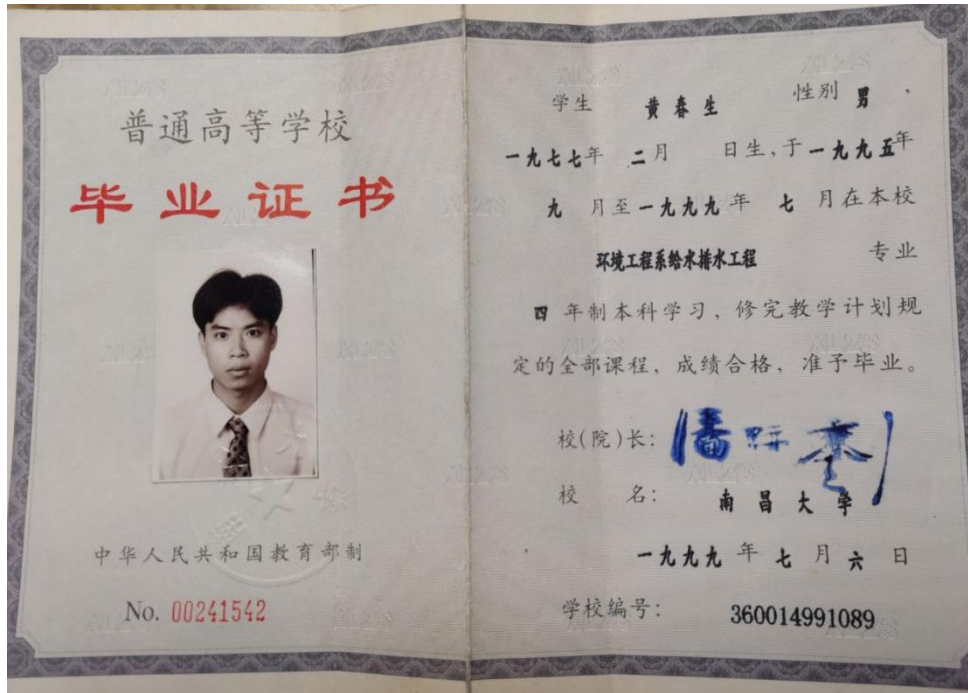 普通高等学校
毕业证书
中华人民共和国教育部制
No. 00241542
学生 黄春生 性别 男
一九七七年 二月 日生,于一九九五年
九 月至一九九九年 七 月在本校
环境工程系给水排水工程 专业
四 年制本科学习，修完教学计划规
定的全部课程，成绩合格，准予毕业。
校(院)长：
校 名： 南昌大学
一九九九 年 七 月 六 日
学校编号： 360014991089